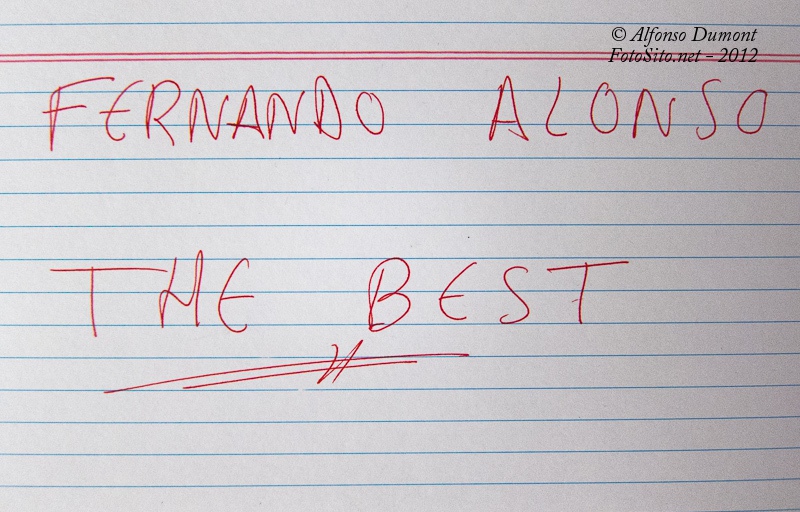 © Alfonso Dumont
FotoSito.net - 2012
FERNANDO ALONSO
THE BEST